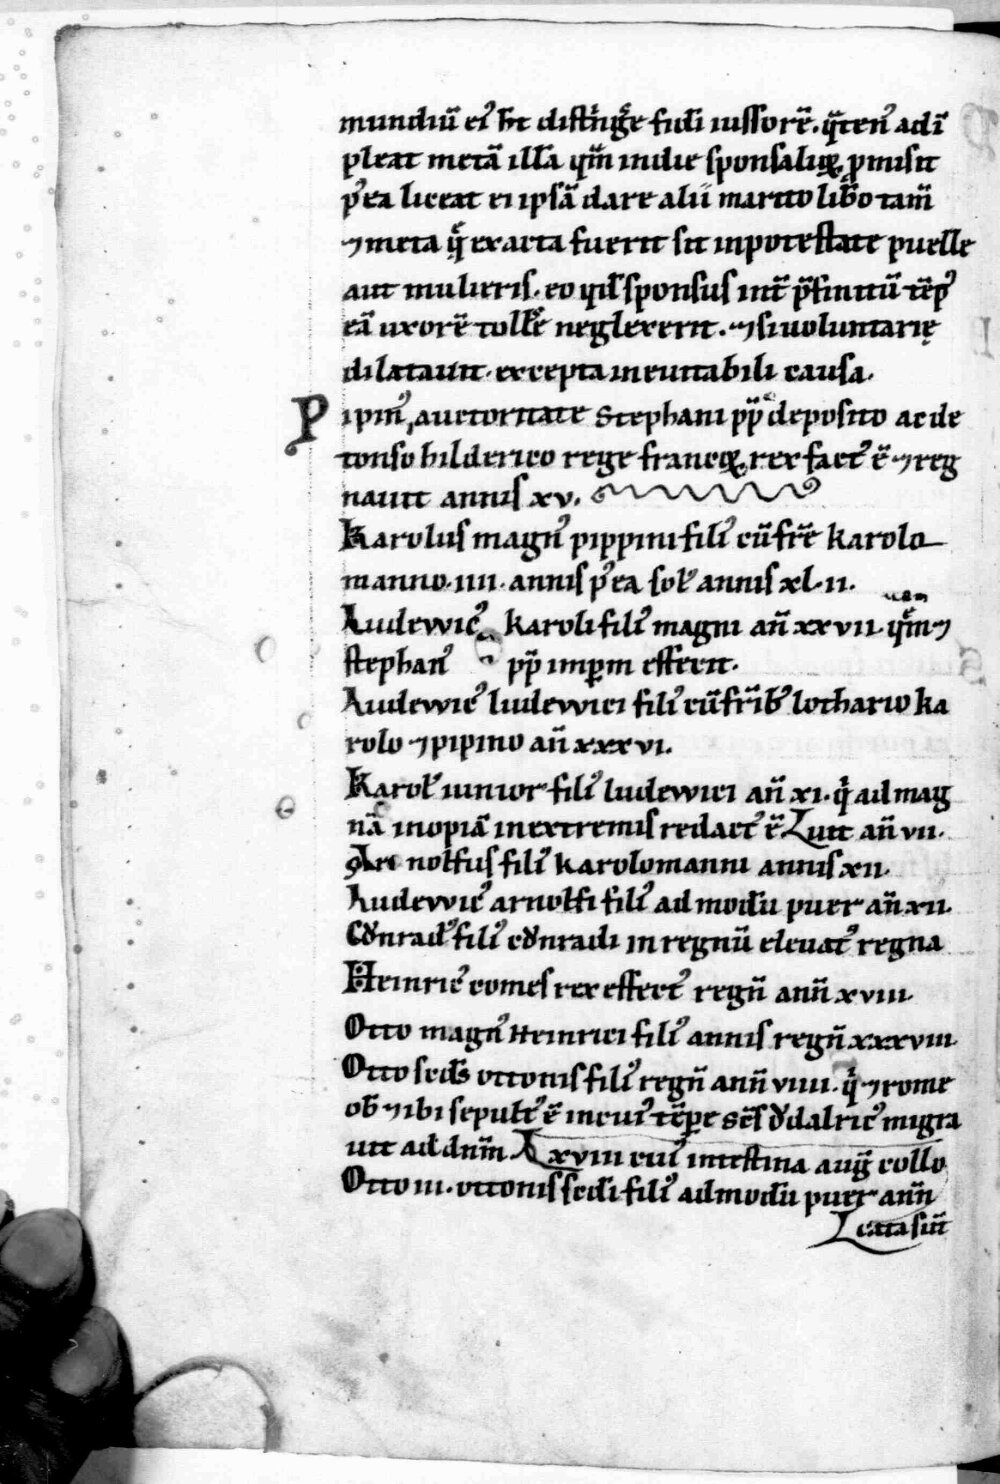 mundiū ei᾽ h̄t distⁱngͤe fidē iussorē. q̄ten᾽ adī
pleat metā illā qm̄ in die sponsalioꝝ ꝓmisit
p᾽ea liceat ei ipsā dare alii marito libo tam̄
⁊ meta q̄ exacta fuerit sit in potestate puelle
aut mulieris. eo qd̄ sponsus int̄ p̄finitū tēp᾽
eā uxorē tollͤe neglexerit. ⁊ si uoluntarię
dilatauit. excepta ineuitabili causa.
Pipin᾽ auctoritate Stephani pp̄ deposito ac de
tonso hilderico rege francoꝝ rex fact᾽ ē ⁊ reg
nauit annis xv.
Karolus magn᾽ pippini fili᾽ cū fr̄e karolo
manno. iiii. annis p᾽ea sol᾽ annis xl. ii.
Ludewic᾽ karoli fili᾽ magni an̄ xxvii. qm̄ ⁊
stephan᾽ pp̄ imꝑm effecit.
Ludewic᾽ ludewici fili᾽ cū fr̄ib᾽ lothario ka
rolo ⁊ pipino an̄ xxxvi.
Karol᾽ iunior fili᾽ ludewici an̄ xi. qⁱ ad mag
nā inopiā in extremis redact᾽ ē Luit an̄ vii.
Arnolfus fili᾽ karolomanni annis xii.
Ludewic᾽ arnolfi fili᾽ ad modū puer an̄ xii.
Cͦnrad᾽ fili᾽ cͦnradi in regnū eleuat᾽ regna
Heinric᾽ comes rex effect᾽ regn̄ ann̄ xviii.
Otto magn᾽ Heinrici fili᾽ annis regn̄ xxxviii.
Otto scd̄s ottonis fili᾽ regn̄ ann̄ viiii. qⁱ ⁊ rome
ob̄ ⁊ ibi sepult᾽ ē in cui᾽ tēꝑe sc̄s Vͦdalric᾽ migra
uit ad dnm̄. xviii eiu᾽ intestina auḡ collo
Otto iii. ottonis scdi fili᾽ admodū puer ann̄
Lcata sūt